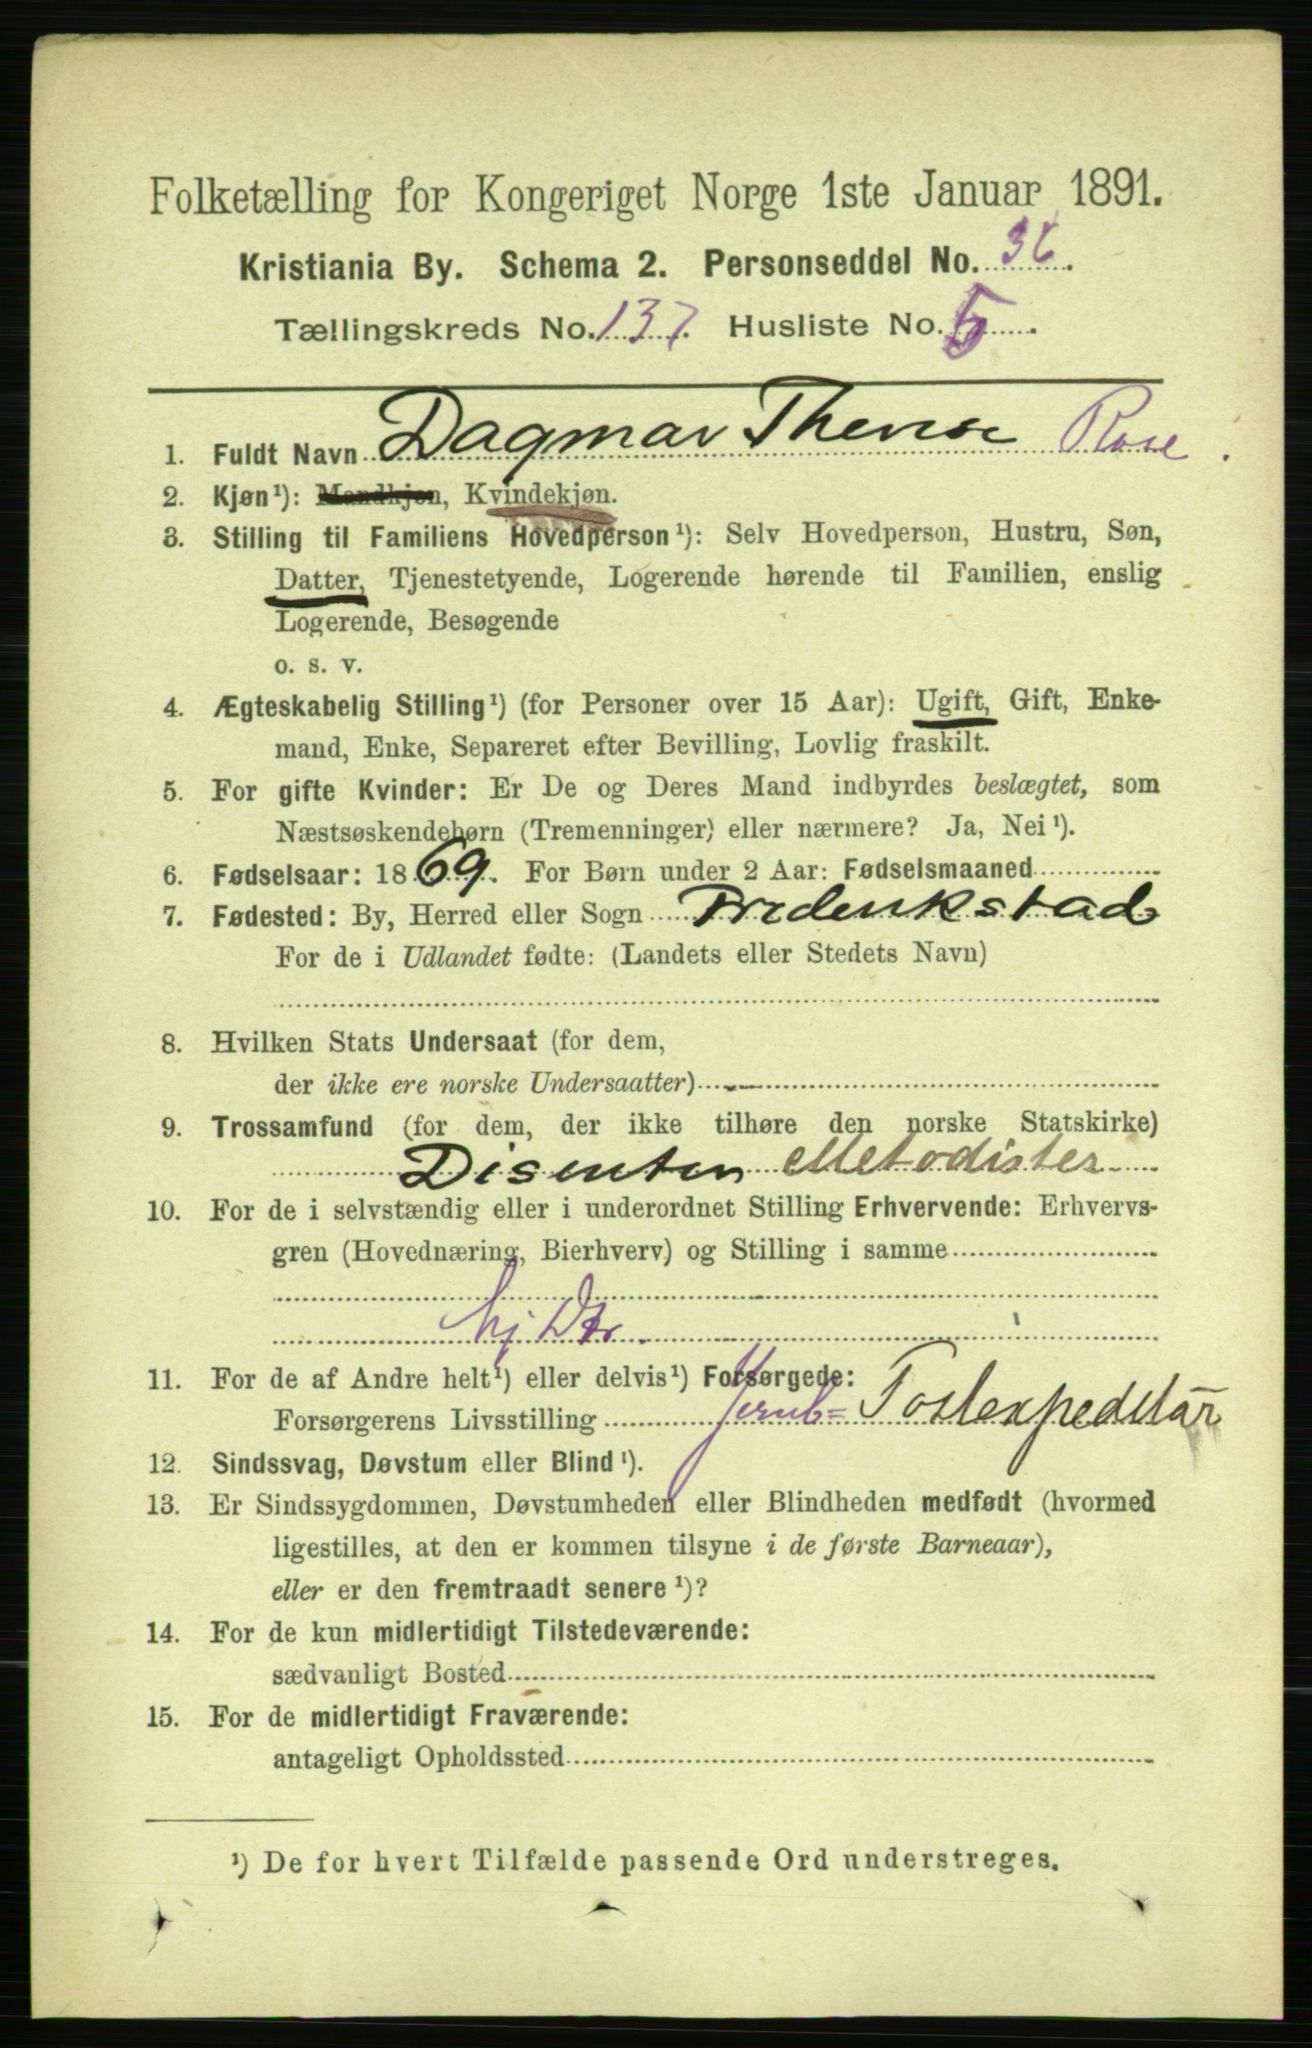 Folketælling for Kongeriget Norge 1ste Januar 1891.
Kristiania By. Schema 2. Personseddel No. 36.
Tællingskreds No. 137. Husliste No. 5.
1. Fuldt Navn Dagmar Therese Rose.
2. Kjøn¹): Mandkjøn, Kvindekjøn.
3. Stilling til Familiens Hovedperson¹): Selv Hovedperson, Hustru, Søn,
Datter, Tjenestetyende, Logerende hørende til Familien, enslig
Logerende, Besøgende
o. s. v.
4. Ægteskabelig Stilling¹) (for Personer over 15 Aar): Ugift, Gift, Enke-
mand, Enke, Separeret efter Bevilling, Lovlig fraskilt.
5. For gifte Kvinder: Er De og Deres Mand indbyrdes beslægtet, som
Næstsøskendebørn (Tremenninger) eller nærmere? Ja, Nei¹).
6. Fødselsaar: 1869. For Børn under 2 Aar: Fødselsmaaned
7. Fødested: By, Herred eller Sogn Frederikstad
For de i Udlandet fødte: (Landets eller Stedets Navn)
8. Hvilken Stats Undersaat (for dem,
der ikke ere norske Undersaatter)
9. Trossamfund (for dem, der ikke tilhøre den norske Statskirke)
Disenter Metodister
10. For de i selvstændig eller i underordnet Stilling Erhvervende: Erhvervs-
gren (Hovednæring, Bierhverv) og Stilling i samme
hj Dtr.
11. For de af Andre helt¹) eller delvis¹) Forsørgede:
Forsørgerens Livsstilling Jernb= Postexpeditør
12. Sindssvag, Døvstum eller Blind¹).
13. Er Sindssygdommen, Døvstumheden eller Blindheden medfødt (hvormed
ligestilles, at den er kommen tilsyne i de første Barneaar),
eller er den fremtraadt senere¹)?
14. For de kun midlertidigt Tilstedeværende:
sædvanligt Bosted
15. For de midlertidigt Fraværende:
antageligt Opholdssted
¹) De for hvert Tilfælde passende Ord understreges.